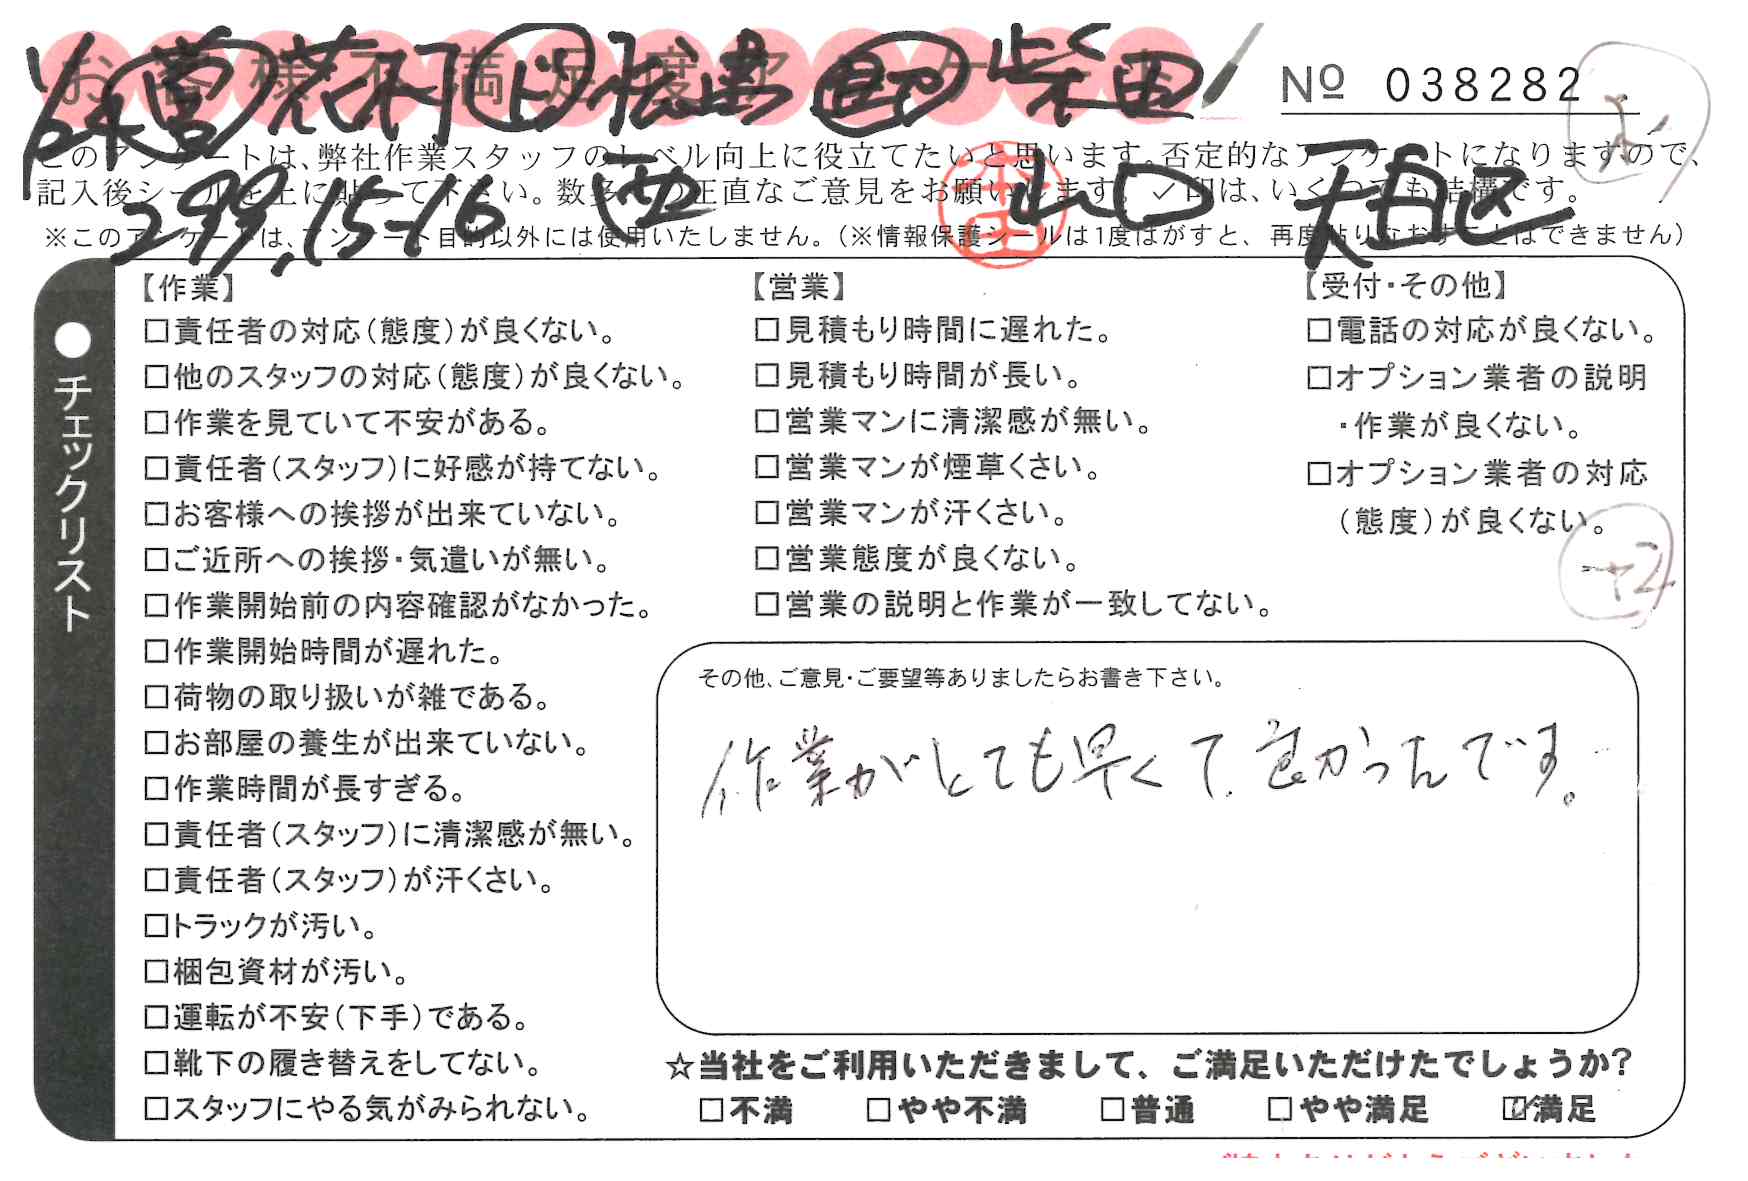 お客様不満足度アンケート
№ 038282
このアンケートは、弊社作業スタッフのレベル向上に役立てたいと思います。否定的なアンケートになりますので、
記入後シールを上に貼って下さい。数多くの正直なご意見をお願いします。✓印は、いくつでも結構です。
※このアンケートは、アンケート目的以外には使用いたしません。(※情報保護シールは1度はがすと、再度貼りなおすことはできません)
299,15-16 西 山口 天白区
●チェックリスト
【作業】
□責任者の対応(態度)が良くない。
□他のスタッフの対応(態度)が良くない。
□作業を見ていて不安がある。
□責任者(スタッフ)に好感が持てない。
□お客様への挨拶が出来ていない。
□ご近所への挨拶・気遣いが無い。
□作業開始前の内容確認がなかった。
□作業開始時間が遅れた。
□荷物の取り扱いが雑である。
□お部屋の養生が出来ていない。
□作業時間が長すぎる。
□責任者(スタッフ)に清潔感が無い。
□責任者(スタッフ)が汗くさい。
□トラックが汚い。
□梱包資材が汚い。
□運転が不安(下手)である。
□靴下の履き替えをしてない。
□スタッフにやる気がみられない。
【営業】
□見積もり時間に遅れた。
□見積もり時間が長い。
□営業マンに清潔感が無い。
□営業マンが煙草くさい。
□営業マンが汗くさい。
□営業態度が良くない。
□営業の説明と作業が一致してない。
【受付・その他】
□電話の対応が良くない。
□オプション業者の説明
・作業が良くない。
□オプション業者の対応
(態度)が良くない。
+2
その他、ご意見・ご要望等ありましたらお書き下さい。
作業がとても早くて良かったんです。
☆当社をご利用いただきまして、ご満足いただけたでしょうか?
□不満 □やや不満 □普通 □やや満足 ☑満足